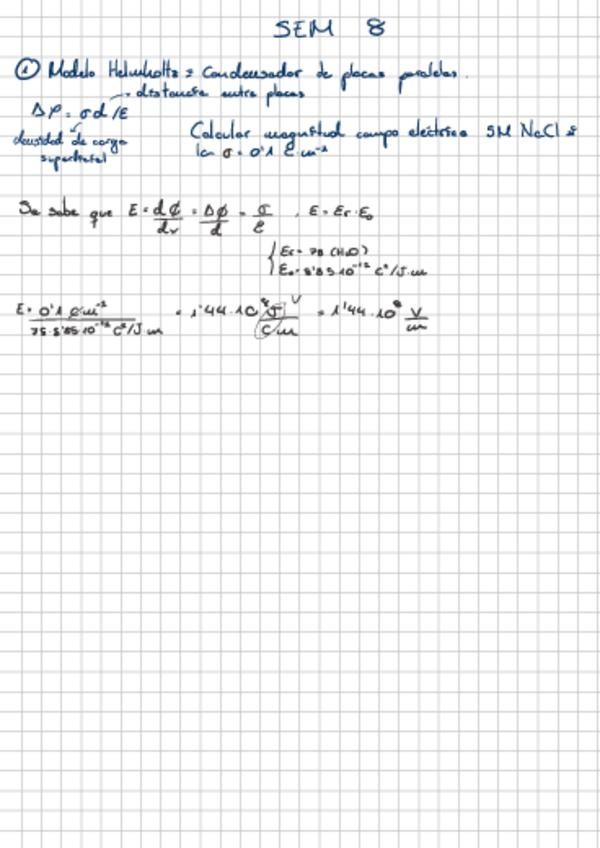 SEM 8
① Modelo Helmholtz = Condensador de placas paralelas.
→ distancia entre placas
Δφ = σd/ε
densidad de carga superficial
Calcular magnitud campo eléctrico 5M NaCl si
σ = 0'1 C·m⁻²
Se sabe que E = dφ/dr = Δφ/d = σ/ε , ε = εr·ε₀
{ εr = 78 (H₂O)
ε₀ = 8'85·10⁻¹² C²/J·m
E = 0'1 C m⁻² / 78·8'85·10⁻¹² C²/J·m = 1'44·10⁸ J/C m V = 1'44·10⁸ V/m